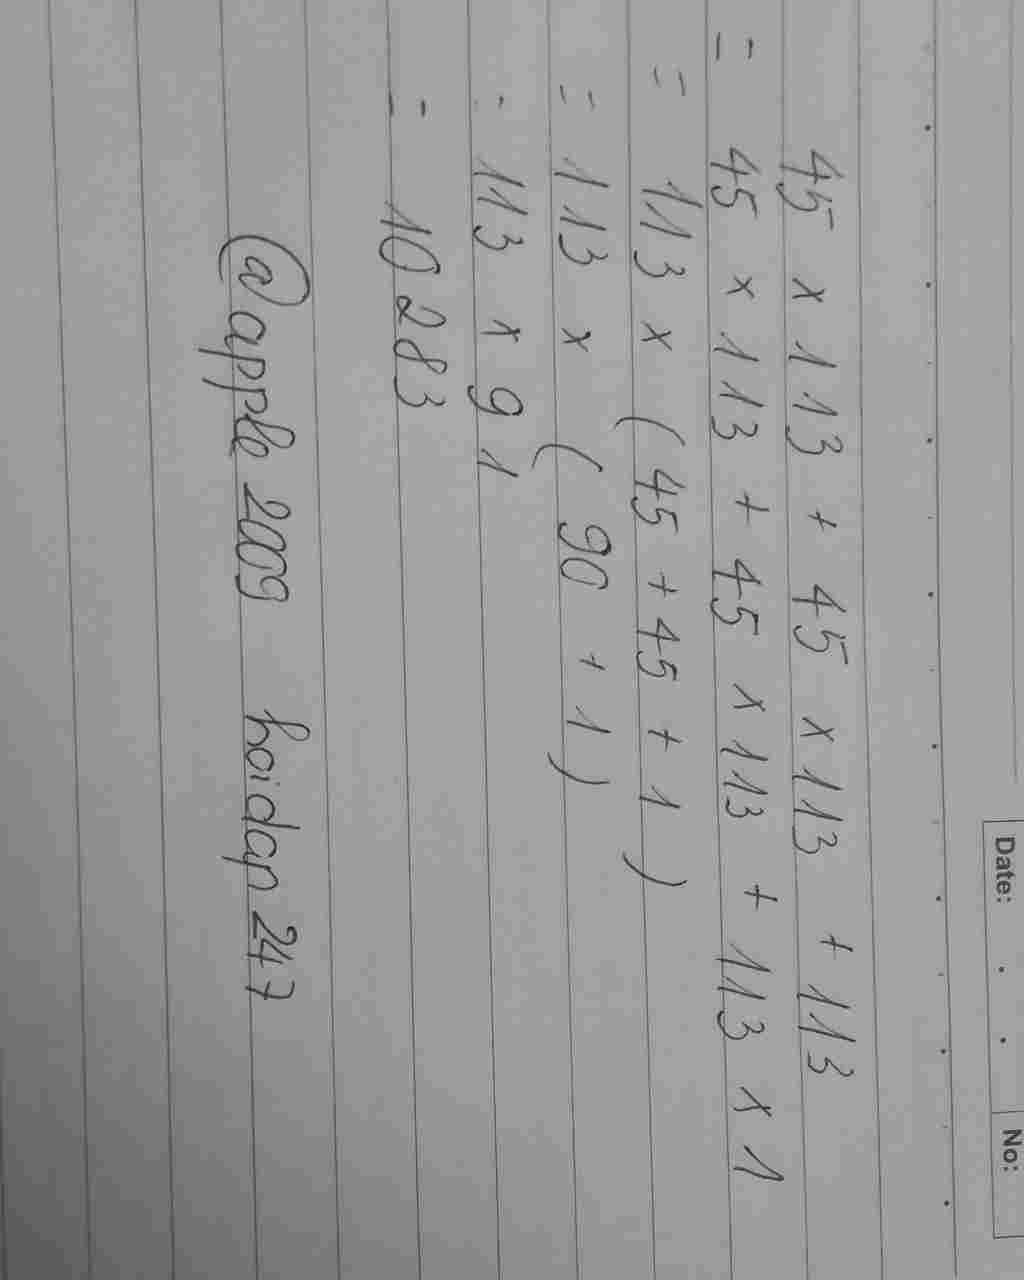 Date: . . No:
45 x 113 + 45 x 113 + 113
= 45 x 113 + 45 x 113 + 113 x 1
= 113 x (45 + 45 + 1)
= 113 x ( 90 + 1)
= 113 x 91
= 10 283
@apple 2009 hoidap 247